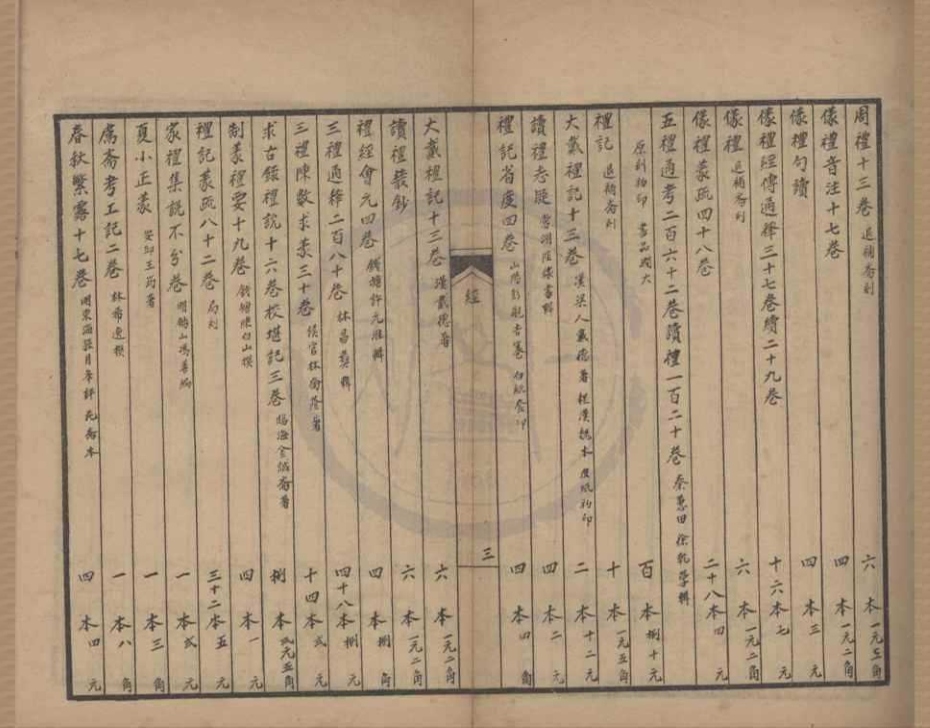 周禮十三卷 退補齋刻 六本 一元二角
儀禮音注十七卷 四本 一元二角
儀禮句讀 四本 三元
儀禮經傳通釋三十七卷續二十九卷 十六本 七元
儀禮 退補齋刻 六本 一元二角
儀禮蒙疏四十八卷 二十八本 四元
五禮通考二百六十二卷讀禮一百二十卷 秦蕙田 徐乾學輯
原刻初印 書品闊大 百本 捌十元
禮記 退補齋刻 十本 一元五角
大戴禮記十三卷 漢梁人戴德著 程漢魏本 皮紙初印 二本 十二元
讀禮志疑 當湖陸隴其輯 四本 二元
禮記省度四卷 白紙套印 四本 四角
經
三
大戴禮記十三卷 漢戴德著 六本 一元二角
讀禮叢鈔 六本 一元二角
禮經會元四卷 錢塘許元淮輯 四本 捌角
三禮通釋二百八十卷 林昌彝輯 四十八本 捌元
三禮陳數求義三十卷 侯官林喬蔭著 十四本 貳元
求古錄禮說十六卷校勘記三卷 臨海金誠齋著 捌本 貳元五角
制義禮要十九卷 四本 一元
禮記義疏八十二卷 局刻 三十二本 五元
家禮集說不分卷 明鶴山馮善編 一本 貳元
夏小正義 安邱王筠著 一本 三角
鬳齋考工記二卷 林希逸撰 一本 八角
春秋繁露十七卷 四本 四元